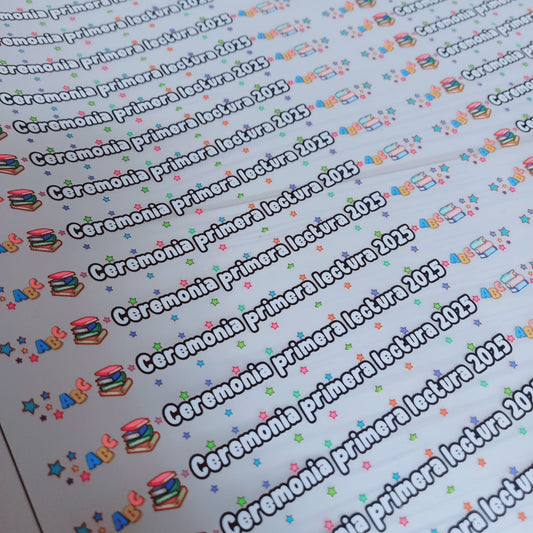 Ceremonia primera lectura 2025
Ceremonia primera lectura 2025
Ceremonia primera lectura 2025
Ceremonia primera lectura 2025
Ceremonia primera lectura 2025
ABC Ceremonia primera lectura 2025 ABC
ABC Ceremonia primera lectura 2025 ABC
ABC Ceremonia primera lectura 2025 ABC
ABC Ceremonia primera lectura 2025 ABC
ABC Ceremonia primera lectura 2025 ABC
ABC Ceremonia primera lectura 2025 ABC
ABC Ceremonia primera lectura 2025
ABC Ceremonia primera lectura 2025
Ceremonia primera lectura